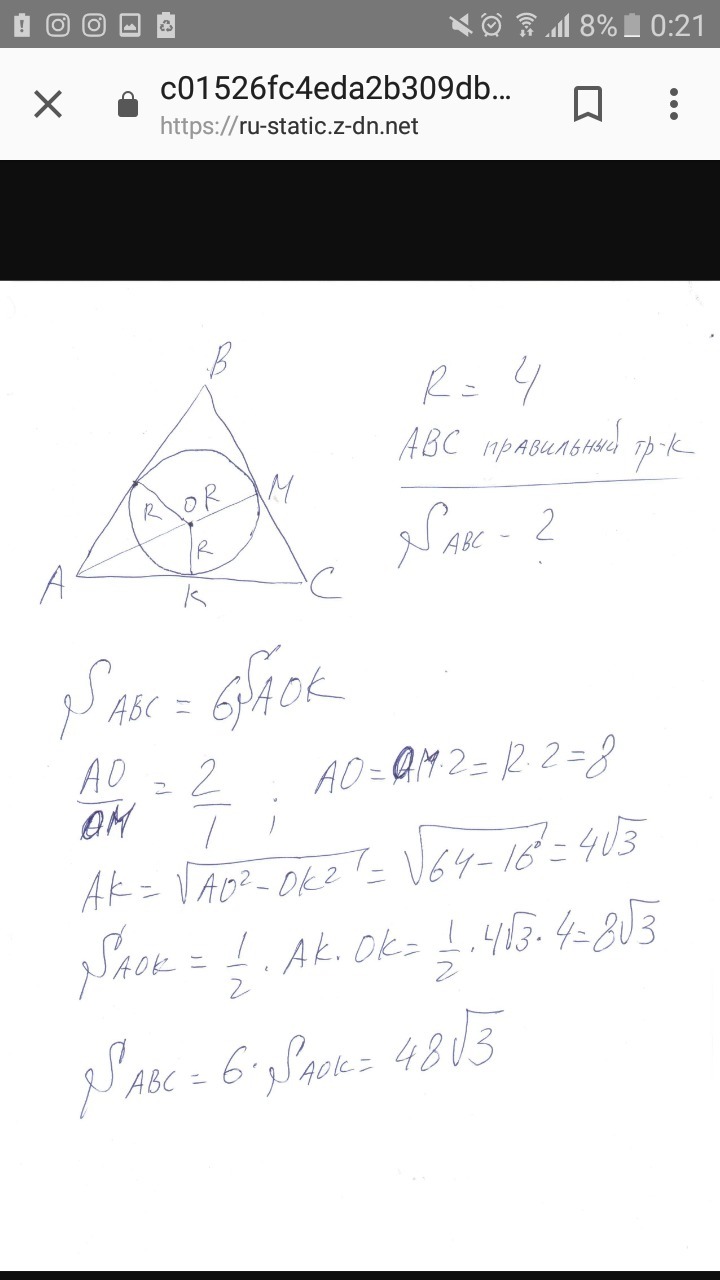 8% 0:21
c01526fc4eda2b309db...
https://ru-static.z-dn.net
B
R = 4
ABC правильный тр-к
S ABC - ?
O R
M
R
R
A
K
C
S ABC = 6 S AOK
AO/OM = 2/1 ; AO = OM·2 = R·2 = 8
AK = √AO² - OK² = √64 - 16 = 4√3
S AOK = 1/2 · AK · OK = 1/2 · 4√3 · 4 = 8√3
S ABC = 6 · S AOK = 48√3